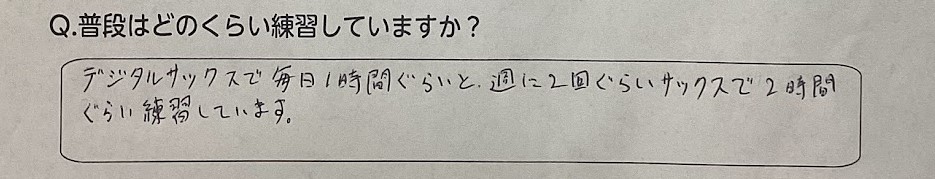 Q.普段はどのくらい練習していますか？
デジタルサックスで毎日1時間ぐらいと、週に2回ぐらいサックスで2時間
ぐらい練習しています。